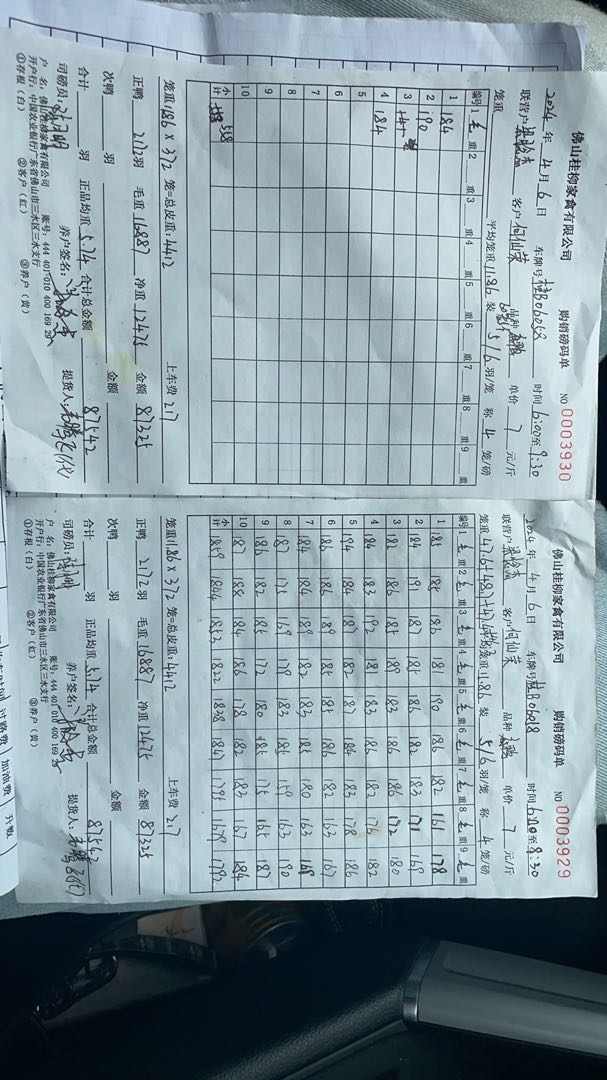 佛山桂柳家禽有限公司 购销磅码单 NO 0003930
2024年4月6日 车牌号桂B06058 时间6:00至9:30
联营户 客户何仙荣 品种 单价7元/斤
笼重 平均笼重11.86 装5/6羽/笼 称4笼/磅
编号 1毛重 2重 3重 4重 5重 6重 7重 8重 9重
1 184
2 190
3
4 184
5
6
7
8
9
10
小计 558
笼重11.86×372笼=总皮重:4412 上车费217
正鸭2172羽 毛重16887 净重12475 金额87325
次鸭 羽 金额
合计 羽 正品均重5.74 合计总金额87542
司磅员: 养户签名: 提货人:
户名:佛山桂柳家禽有限公司 账号:444 401 010 400 169 29
开户行:中国农业银行广东省佛山市三水区三水支行
①存根(白) ②客户(红) ③养户(黄)
佛山桂柳家禽有限公司 购销磅码单 NO 0003929
2024年4月6日 车牌号桂B06058 时间6:00至8:30
联营户 客户何仙荣 品种 单价7元/斤
笼重 平均笼重11.86 装5/6羽/笼 称4笼/磅
编号 1毛重 2毛重 3毛重 4毛重 5毛重 6毛重 7毛重 8毛重 9毛重
1 185 185 186 181 190 186 182 161 178
2 184 191 187 182 186 182 183 171 169
3 182 186 185 189 183 186 186 172 180
4 184 183 192 181 183 186 182 176 182
5 194 184 187 182 187 184 183 178 186
6 186 186 189 185 185 186 182 163 167
7 184 184 189 182 183 185 180 163 169
8 187 175 169 179 183 185 159 163 190
9 186 182 185 172 180 185 175 165 187
10 187 188 184 186 178 182 183 167 184
小计 1859 1844 1853 1822 1838 1847 1795 1679 1792
笼重11.86×372笼=总皮重:4412 上车费217
正鸭2172羽 毛重16887 净重12475 金额87325
次鸭 羽 金额
合计 羽 正品均重5.74 合计总金额87542
司磅员: 养户签名: 提货人:
户名:佛山桂柳家禽有限公司 账号:444 401 010 400 169 29
开户行:中国农业银行广东省佛山市三水区三水支行
①存根(白) ②客户(红) ③养户(黄)
过路费 加油费